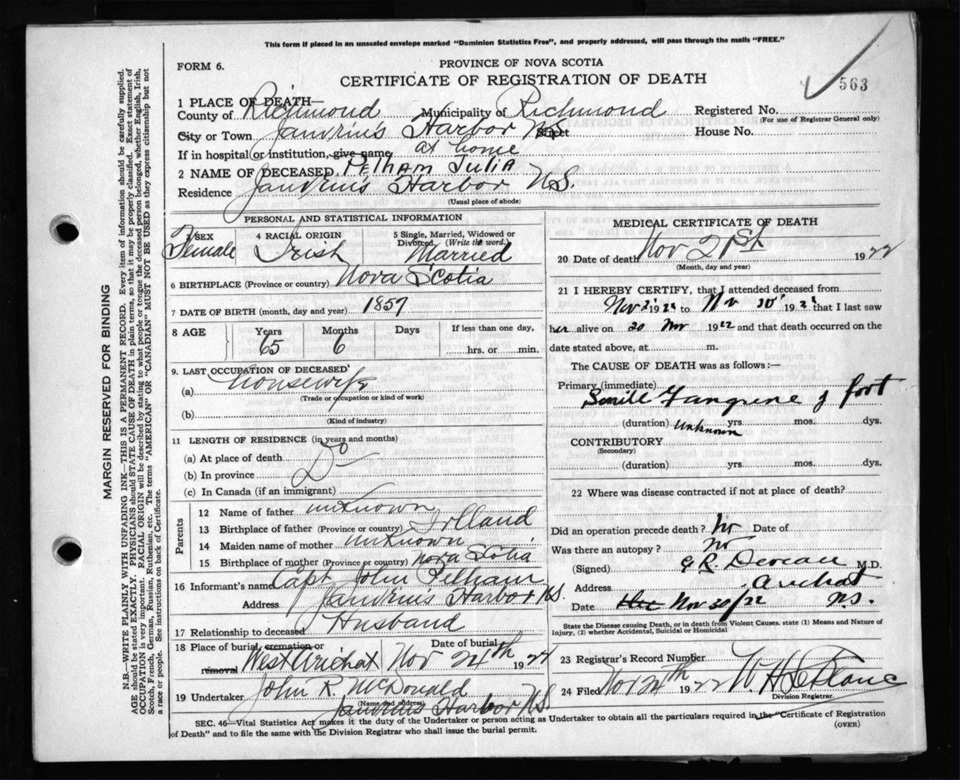 This form if placed in an unsealed envelope marked "Dominion Statistics Free", and properly addressed, will pass through the mails "FREE."
FORM 6.
PROVINCE OF NOVA SCOTIA
CERTIFICATE OF REGISTRATION OF DEATH
563
1 PLACE OF DEATH—
County of Richmond Municipality of Richmond Registered No.
(For use of Registrar General only)
City or Town Janvrins Harbor N.S. Street House No.
If in hospital or institution, give name at home
2 NAME OF DECEASED Pelham Julia
Residence Janvrins Harbor N.S.
(Usual place of abode)
PERSONAL AND STATISTICAL INFORMATION
3 SEX 4 RACIAL ORIGIN 5 Single, Married, Widowed or Divorced. (Write the word.)
Female Irish Married
6 BIRTHPLACE (Province or country) Nova Scotia
7 DATE OF BIRTH (month, day and year) 1857
8 AGE Years Months Days If less than one day,
65 6 hrs. or min.
9. LAST OCCUPATION OF DECEASED
(a) Housewife
(Trade or occupation or kind of work)
(b)
(Kind of industry)
11 LENGTH OF RESIDENCE (in years and months)
(a) At place of death
(b) In province Do
(c) In Canada (if an immigrant)
Parents
12 Name of father unknown
13 Birthplace of father (Province or country) Irlland
14 Maiden name of mother unknown
15 Birthplace of mother (Province or country) Nova Scotia
16 Informant's name Capt John Pelham
Address Janvrins Harbor N.S.
17 Relationship to deceased Husband
18 Place of burial, cremation or removal Date of burial
West Arichat Nov 24th 1922
19 Undertaker John R. McDonald
(Name and address)
Janvrins Harbor N.S.
MEDICAL CERTIFICATE OF DEATH
20 Date of death Nov 21st 1922
(Month, day and year)
21 I HEREBY CERTIFY, that I attended deceased from
Nov 1922 to Nov 1922 that I last saw
her alive on 20 Nov 1922 and that death occurred on the
date stated above, at m.
The CAUSE OF DEATH was as follows:—
Primary (immediate)
Senile Gangrene of foot
(duration) unknown yrs. mos. dys.
CONTRIBUTORY
(Secondary)
(duration) yrs. mos. dys.
22 Where was disease contracted if not at place of death?
Did an operation precede death? No Date of
Was there an autopsy? No
(Signed) M.D.
Address Arichat
Date Nov 30/22 N.S.
State the Disease causing Death, or in death from Violent Causes, state (1) Means and Nature of Injury, (2) whether Accidental, Suicidal or Homicidal
23 Registrar's Record Number
24 Filed Nov 1922 W. H. LeBlanc
Division Registrar
SEC. 46—Vital Statistics Act makes it the duty of the Undertaker or person acting as Undertaker to obtain all the particulars required in the "Certificate of Registration
of Death" and to file the same with the Division Registrar who shall issue the burial permit.
(OVER)
MARGIN RESERVED FOR BINDING
N.B.—WRITE PLAINLY WITH UNFADING INK—THIS IS A PERMANENT RECORD. Every item of information should be carefully supplied.
AGE should be stated EXACTLY. PHYSICIANS should STATE CAUSE OF DEATH in plain terms, so that it may be properly classified. Exact statement of
OCCUPATION is very important. RACIAL ORIGIN will be described by stating to what people or tongue the deceased person belonged, whether English, Irish,
Scotch, French, German, Russian, Ruthenian, etc. The terms "AMERICAN" OR "CANADIAN" MUST NOT BE USED as they express citizenship but not
a race or people. See instructions on back of Certificate.